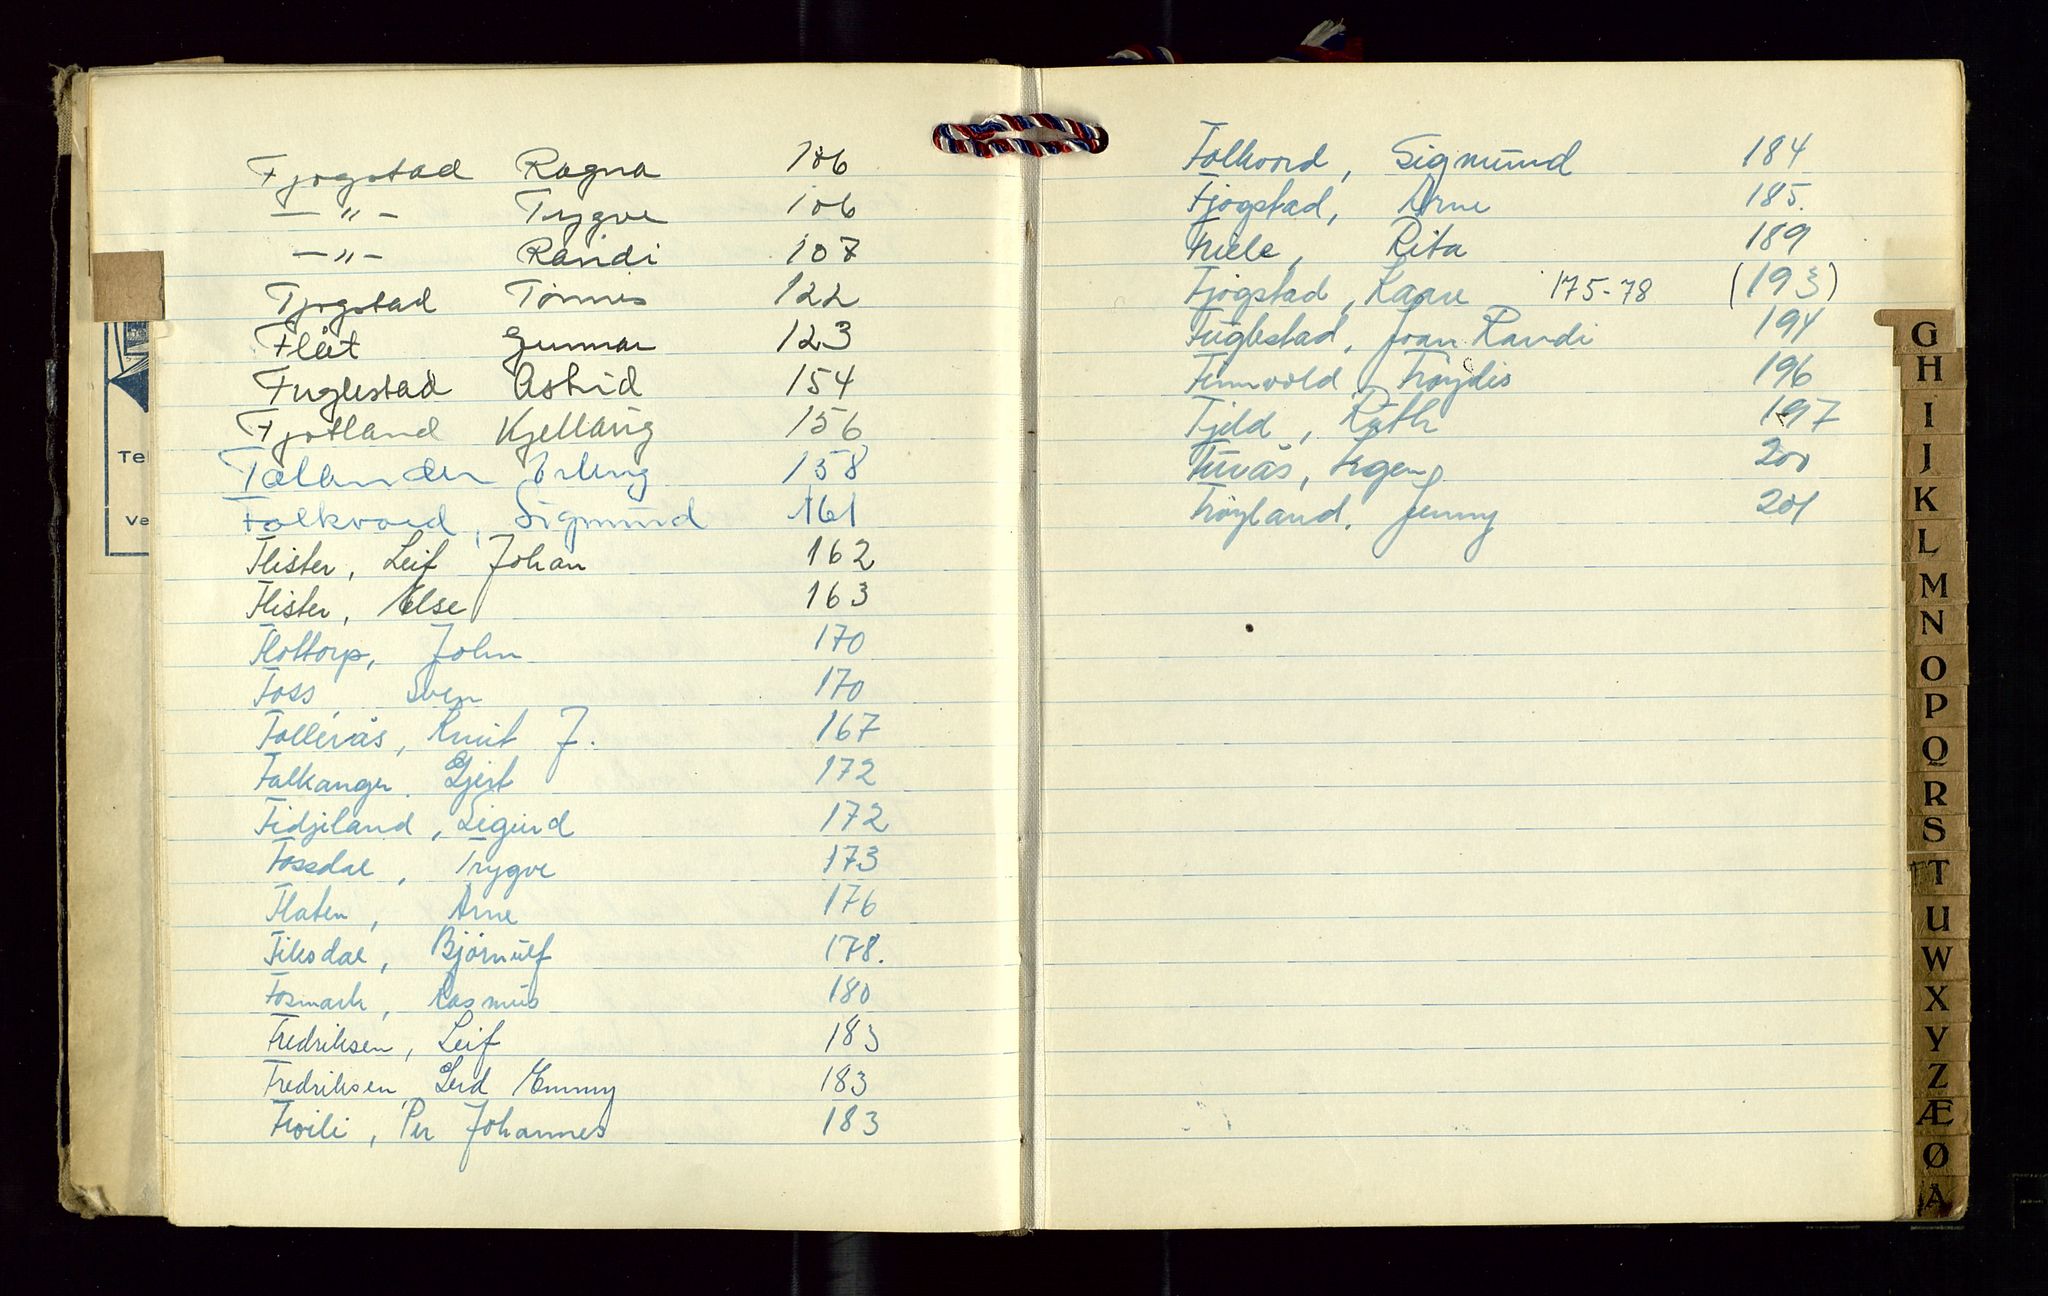 Fjogstad Ragna 106
— " — Trygve 106
— " — Randi 107
Fjogstad Tønnes 122
Flåt Gunnar 123
Fuglestad Astrid 154
Fjotland Kjellaug 156
Erling 158
Folkvord, Sigmund 161
Flister, Leif Johan 162
Flister, Else 163
Flottorp, John 170
Foss, Sven 170
Follerås, Knut J. 167
Falkanger, Gjert 172
Fidjeland, Sigurd 172
Fossdal, Trygve 173
Flaten, Arne 176
Fiksdal, Bjørnulf 178.
Fosmark, Rasmus 180
Fredriksen, Leif 183
Fredriksen, Gerd Emmy 183
Froili, Per Johannes 183
Folkvord, Sigmund 184
Fjogstad, Arne 185.
Rita 189
Fjogstad, Kaare 175-78 (193)
Fuglestad, Joan Randi 194
Finnvold, Frøydis 196
Fjeld, Ruth 197
200
Frøyland, Jenny 201
Te
Ve
G
H
I
J
K
L
M
N
O
P
Q
R
S
T
U
W
X
Y
Z
Æ
Ø
Å